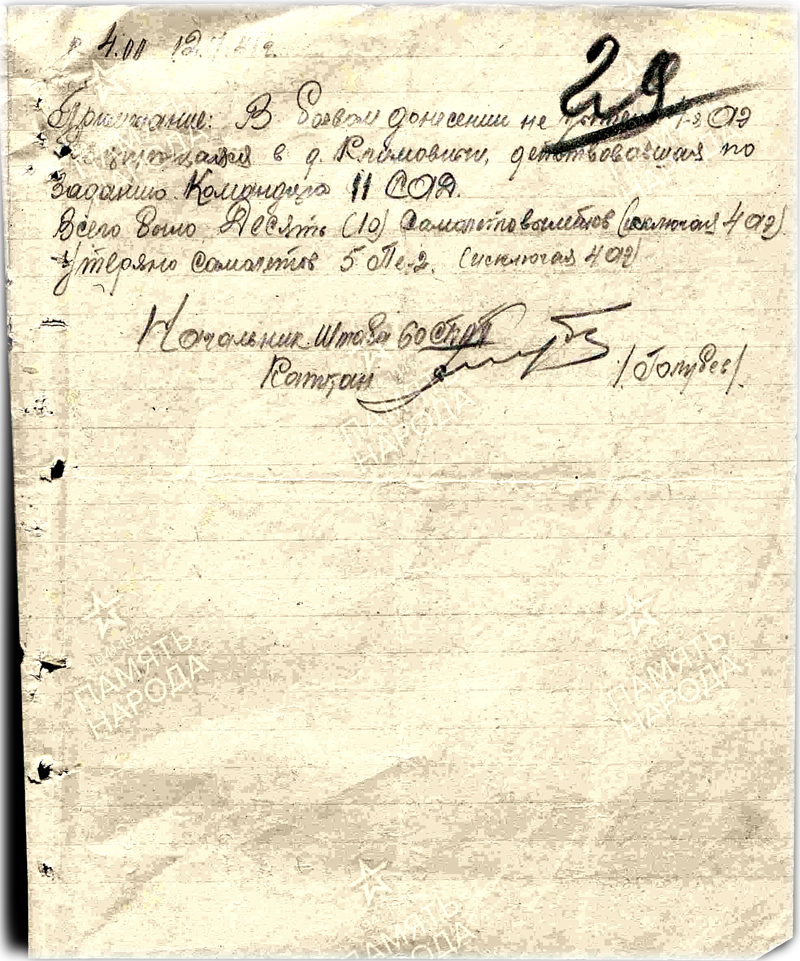 4.00 12.
29
Примечание: В боевом донесении не 1-я АЭ
в д. Климовичи, действовавшая по
Заданию Командира 11 САД.
Всего было Десять (10) Самолетовылетов (исключая 4 АЭ)
Утеряно самолетов 5 Пе-2. (исключая 4 АЭ)
Начальник Штаба 60
Капитан /Голубев/.
ПАМЯТЬ
НАРОДА
ПАМЯТЬ
НАРОДА
ПАМЯТЬ
НАРОДА
ПАМЯТЬ
НАРОДА